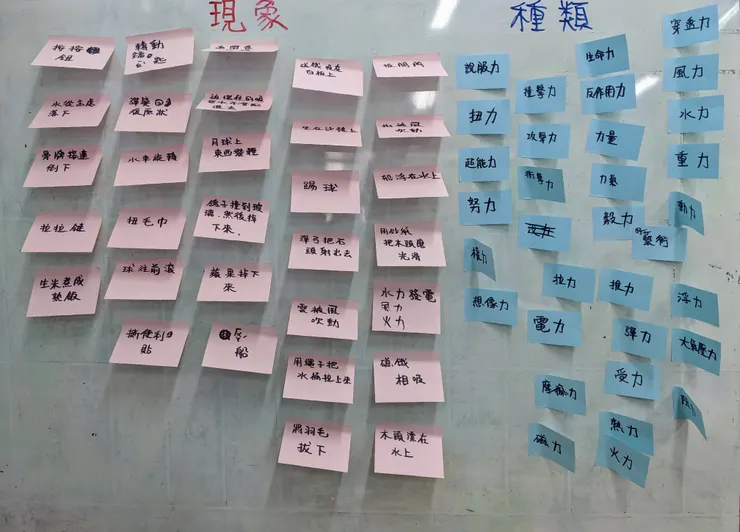 現象
種類
轉動
水從高處
落下
骨牌接連
倒下
拉拉鏈
生米煮成
熟飯
彈簧回
復原狀
水車旋轉
扭毛巾
球往前滾
撕便利
貼
月球上
東西變輕
鴿子撞到玻
璃,然後掉
下來.
蘋果掉下
來
白板上
坐在沙發上
踢球
彈弓把石
頭射出去
雲被風
吹動
用繩子把
水桶拉上來
將羽毛
拔下
吹動
船浮在水上
用砂紙
把木頭磨
光滑
水力發電
風力
火力
磁鐵
相吸
木頭浮在
水上
說服力
扭力
超能力
努力
權力
想像力
撞擊力
攻擊力
衝擊力
拉力
電力
摩擦力
磁力
生命力
反作用力
力量
力氣
毅力
藝術
推力
彈力
受力
熱力
火力
穿透力
風力
水力
重力
動力
浮力
大氣壓力